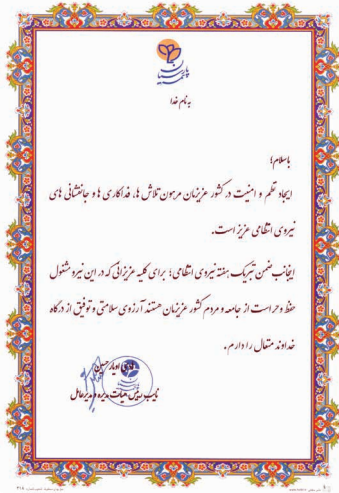 بیمه پارسیان
به نام خدا
باسلام؛
ایجاد نظم و امنیت در کشور عزیزمان مرهون تلاش ها، فداکاری ها و جانفشانی های
نیروی انتظامی عزیز است.
اینجانب ضمن تبریک هفته نیروی انتظامی؛ برای کلیه عزیزانی که در این نیرو مشغول
حفظ و حراست از جامعه و مردم کشور عزیزمان هستند آرزوی سلامتی و توفیق از درگاه
خداوند متعال را دارم.
هادی اویارحسین
نایب رئیس هیات مدیره و مدیرعامل